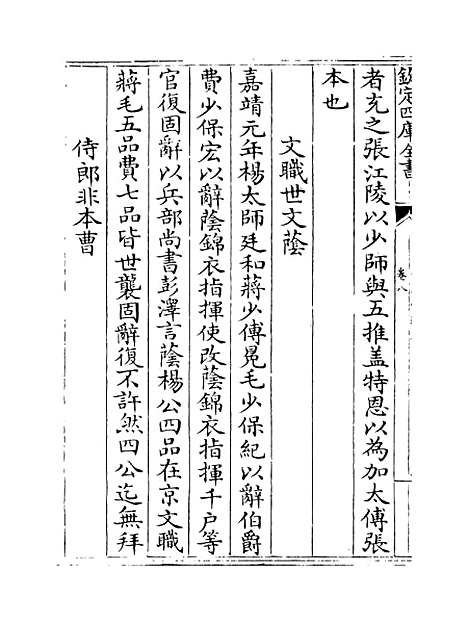 欽定四庫全書
卷八
者充之張江陵以少師與五推盖特恩以為加太傅張
本也
文職世文蔭
嘉靖元年楊太師廷和蔣少傅冕毛少保紀以辭伯爵
費少保宏以辭蔭錦衣指揮使改蔭錦衣指揮千户等
官復固辭以兵部尚書彭澤言蔭楊公四品在京文職
蔣毛五品費七品皆世襲固辭復不許然四公迄無拜
侍郎非本曹